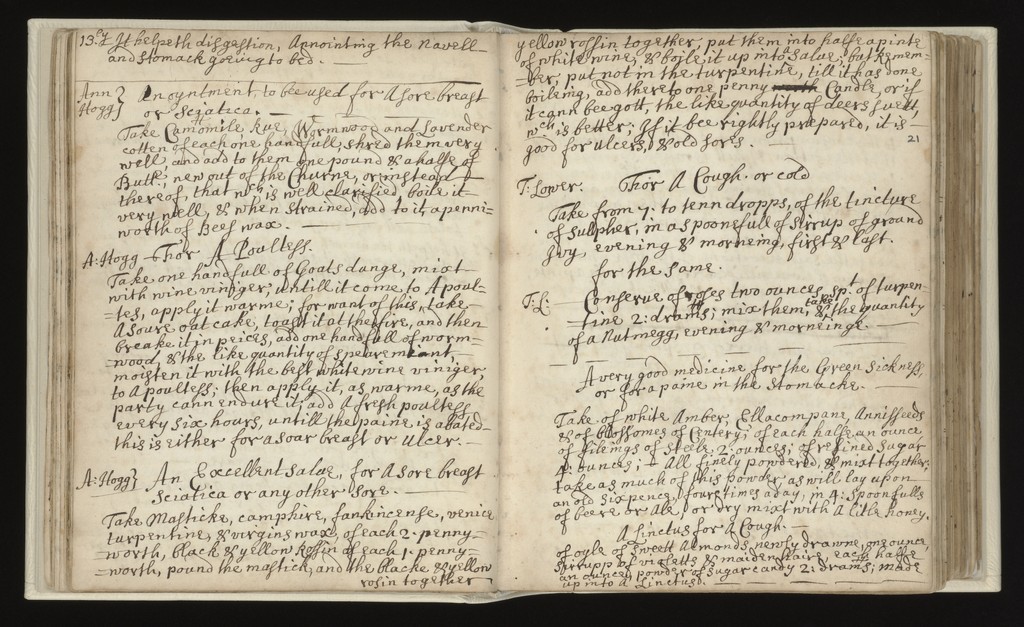 13.ly It helpeth disgestion, Annointing the navell
and stomack goeing to bed.
Ann Hogg} An oyntment, to be used for A sore breast
or sciatica.
Take Camomile Rue, Wormwood and Lavender
cotten of each one handfull, shred them very
well, and add to them one pound & a halfe of
Butt:, new out of the Churne, or instead
thereof, that wch is well clarified boile it
very well, & when strained, add to it, a penni-
worth of Bees wax.
A: Hogg Thor A Poultess.
Take one handfull of Goats dunge, mixt
with wine viniger, untill it come to A poul-
tes, apply it warme; for want of this, take
A soure oat cake, toast it at the fire, and then
breake it in peices, add one handfull of worm-
wood, & the like quantity of spearemant,
moisten it with the best white wine viniger
to A poultess; then apply it, as warme, as the
party cann endure it; add A fresh poultess,
every six hours, untill the paine is abated
this is either for a soar breast or ulcer.
A: Hogg} An Excellent salve, for A sore breast
sciatica or any other sore.
Take Masticke, camphire, frankincense, venice
turpentine, & virgins wax, of each 2. penny-
worth, black & yellow Rosin of each 1. penny-
worth, pound the mastick, and the blacke & yellow
rosin together
yellow rossin together, put them into halfe a pinte
of white wine, & boile it up into a salve; but remem-
ber, put not in the turpentine, till it has done
boileing, add thereto one penny Candle, or if
it cann bee gott, the like quantity of deers suett,
wch is better; If it bee rightly prepared, it is
good for ulcers, & old sores.
21
T: Lower. Thor A Cough. or cold
Take from 7. to tenn dropps, of the tincture
of sulpher, in a spoonefull of sirrup of ground
Ivy, evening & morneing, first & last.
for the same.
T: L: Conserve of roses two ounces, spt. of turpen-
tine 2: drams; mix them, take & the quantity
of a Nutmegg, evening & morneinge.
A very good medicine for the Green sickness,
or for a paine in the stomacke.
Take of white Amber, Ellacompane, Annisseeds
& of blossomes of Centery; of each halfe an ounce
of fileings of steele 2. ounces; of refined sugar
4: ounces; All finely powdered, & mixt together;
take as much of this powder, as will lay upon
an old sixpence, four times a day, in 4: spoonfulls
of beere or Ale, or dry mixt with A litle honey.
A Linctus for A Cough.
of oyle of sweet Almonds newly drawne, one ounce,
sirrupp of violetts & maidenhaire, each halfe
an ounce, powder of sugar candy 2: drams; made
up into A Linctus.